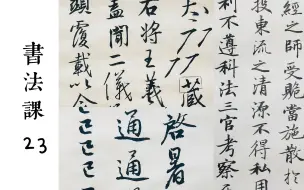 書法課
23
經之師受貺當施散於
投東流之清源不得私用
利不遵科法三官考察
藏
啓暑
右將王羲
蓋聞二儀
顯覆載以含
通通